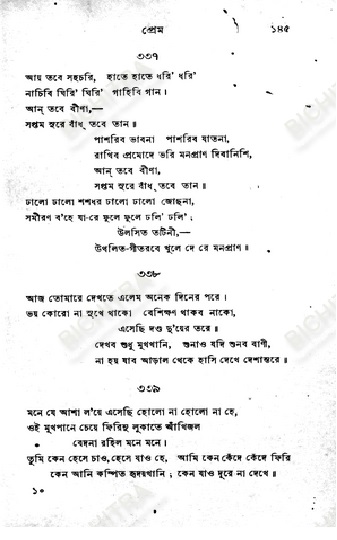 প্রেম ১৪৫
৩৩৭
আয় তবে সহচরি, হাতে হাতে ধরি' ধরি'
নাচিবি ঘিরি' ঘিরি' গাহিবি গান।
আন্ তবে বীণা,—
সপ্তম সুরে বাঁধ্ তবে তান॥
পাশরিব ভাবনা পাশরিব যাতনা,
রাখিব প্রমোদে ভরি মনপ্রাণ দিবানিশি,
আন্ তবে বীণা,
সপ্তম সুরে বাঁধ্ তবে তান॥
ঢালো ঢালো শশধর ঢালো ঢালো জোছনা,
সমীরণ ব'হে যা-রে ফুলে ফুলে ঢলি' ঢলি';
উলসিত তটিনী,—
উথলিত-গীতরবে খুলে দে রে মনপ্রাণ॥
৩৩৮
আজ তোমারে দেখতে এলেম অনেক দিনের পরে।
ভয় কোরো না সুখে থাকো বেশিক্ষণ থাকব নাকো,
এসেছি দণ্ড দু'য়ের তরে॥
দেখব শুধু মুখখানি, শুনাও যদি শুনব বাণী,
না হয় যাব আড়াল থেকে হাসি দেখে দেশান্তরে॥
৩৩৯
মনে যে আশা ল'য়ে এসেছি হোলো না হোলো না হে,
ওই মুখপানে চেয়ে ফিরিনু লুকাতে আঁখিজল
বেদনা রহিল মনে মনে।
তুমি কেন হেসে চাও, হেসে যাও হে, আমি কেন কেঁদে কেঁদে ফিরি
কেন আনি কম্পিত হৃদয়খানি; কেন যাও দূরে না দেখে॥
১০
BICHITRA